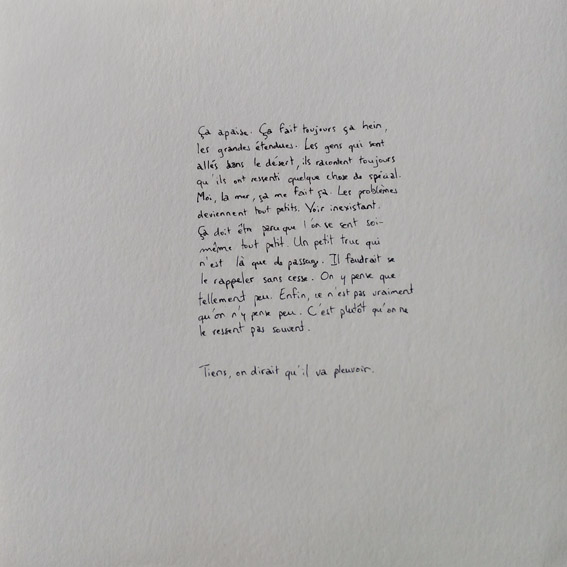 Ça apaise. Ça fait toujours ça hein,
les grandes étendues. Les gens qui sont
allés dans le désert, ils racontent toujours
qu'ils ont ressenti quelque chose de spécial.
Moi, la mer, ça me fait ça. Les problèmes
deviennent tout petits. Voir inexistant.
Ça doit être parce que l'on se sent soi-
même tout petit. Un petit truc qui
n'est là que de passage. Il faudrait se
le rappeler sans cesse. On y pense que
tellement peu. Enfin, ce n'est pas vraiment
qu'on n'y pense peu. C'est plutôt qu'on ne
le ressent pas souvent.
Tiens, on dirait qu'il va pleuvoir.